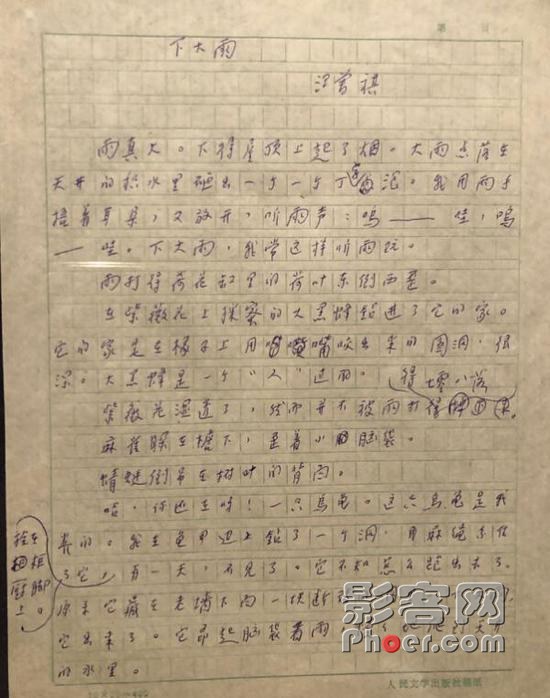 第 页
下大雨
汪曾祺
雨真大。下得屋顶上起了烟。大雨点落在
天井的积水里砸出一个一个丁字泡。我用两手
捂着耳朵，又放开，听雨声：呜——哇；呜
——哇。下大雨，我常这样听雨玩。
雨打得荷花缸里的荷叶东倒西歪。
在紫薇花上采蜜的大黑蜂钻进了它的家。
它的家是在椽子上用嘴咬出来的圆洞，很
深。大黑蜂是一个“人”过的。
紫薇花湿透了，然而并不被雨打得零八落
麻雀躲在檐下，歪着小脑袋。
蜻蜓倒吊在树叶的背面。
哈，你还在呀！一只乌龟。这只乌龟是我
养的。我在龟甲边上钻了一个洞，用麻绳系住
了它，拴在柜橱脚上。有一天，不见了。它不知怎么跑出去了。
原来它藏在老墙下面一块断
它出来了。它昂起脑袋看雨
的水里。
影客网
Phoer.com
人民文学出版社稿纸